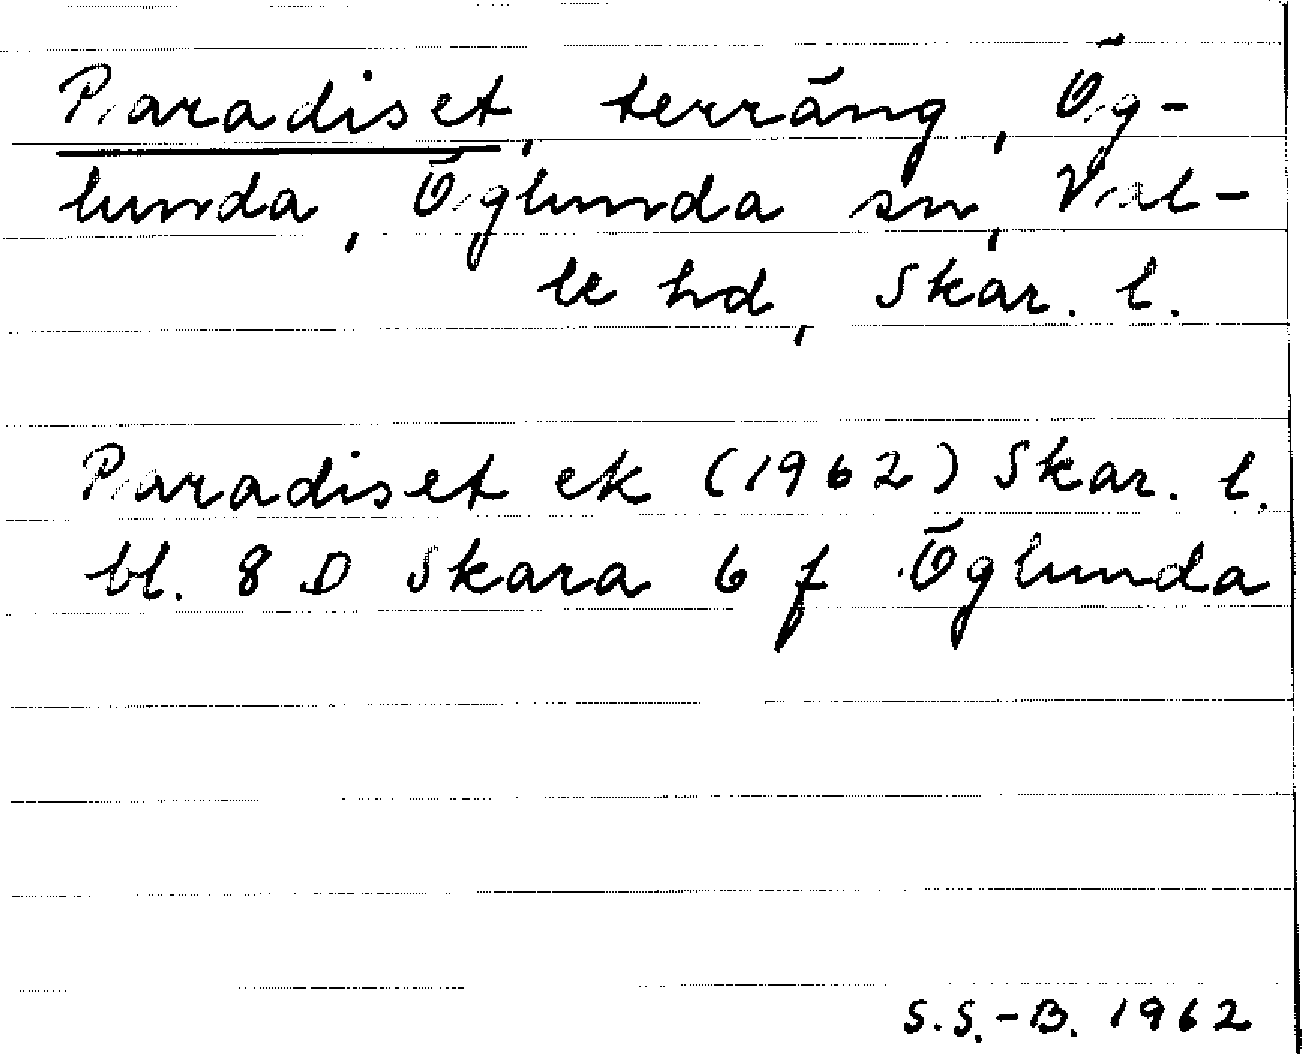 Paradiset, terräng, Ög-
lunda, Öglunda sn, Val-
le hd, Skar. l.
Paradiset ek (1962) Skar. l.
bl. 8 D Skara 6 f Öglunda
S.S.-B. 1962